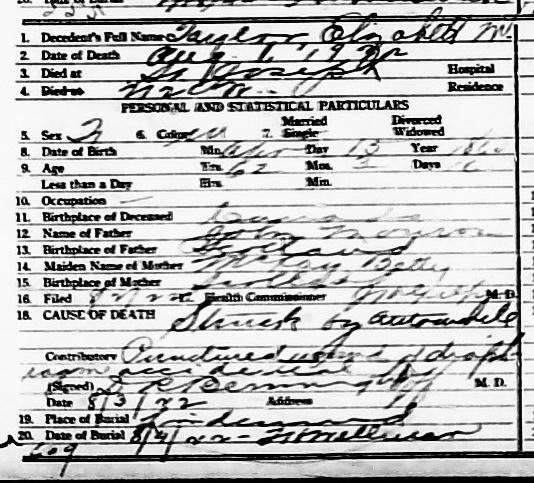 1. Decedent's Full Name Taylor Elizabeth M
2. Date of Death Aug 1, 1922
3. Died at St Joseph Hospital
4. Died at Residence
PERSONAL AND STATISTICAL PARTICULARS
5. Sex F 6. Color W 7. Married Single Divorced Widowed
8. Date of Birth Mo. Apr Day 13 Year
9. Age Yrs. 62 Mos. 3 Days
Less than a Day Hrs. Min.
10. Occupation —
11. Birthplace of Deceased Canada
12. Name of Father John Monroe
13. Birthplace of Father Scotland
14. Maiden Name of Mother McCoy Betty
15. Birthplace of Mother Scotland
16. Filed 8/2/22 Health Commissioner M. D.
18. CAUSE OF DEATH Struck by automobile
Contributory Punctured wound of diaph
ragm accidental
(Signed) M. D.
Date 8/3/22 Address
19. Place of Burial Lindenwood
20. Date of Burial 8/4/22